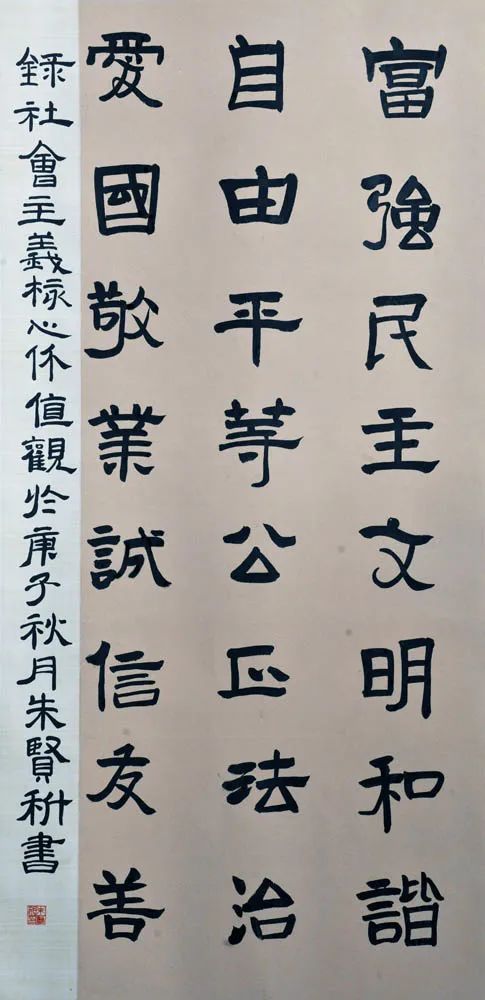 富強民主文明和諧
自由平等公正法治
愛國敬業誠信友善
録社會主義核心价值觀於庚子秋月朱賢書